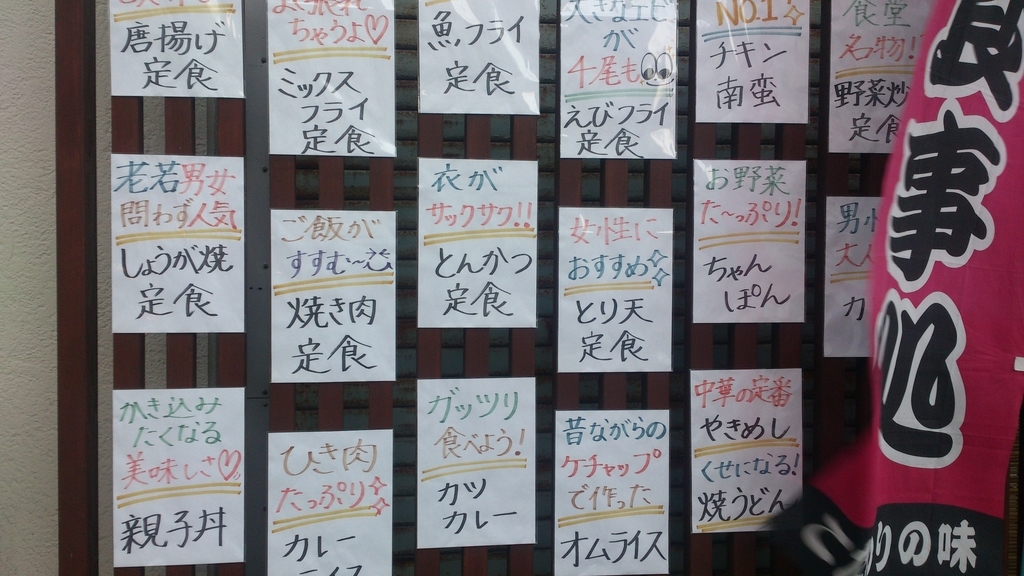 唐揚げ
定食
ちゃうよ♡
ミックス
フライ
定食
魚フライ
定食
大きなエビ
が
4尾も
えびフライ
定食
NO.1
チキン
南蛮
食堂
名物!
野菜炒
定食
老若男女
問わず人気
しょうが焼
定食
ご飯が
すすむ〜
焼き肉
定食
衣が
サックサク!!
とんかつ
定食
女性に
おすすめ
とり天
定食
お野菜
た〜っぷり!
ちゃん
ぽん
男
大
カ
かき込み
たくなる
美味しさ♡
親子丼
ひき肉
たっぷり
カレー
ガッツリ
食べよう!
カツ
カレー
昔ながらの
ケチャップ
で作った
オムライス
中華の定番
やきめし
くせになる!
焼うどん
食事処
りの味